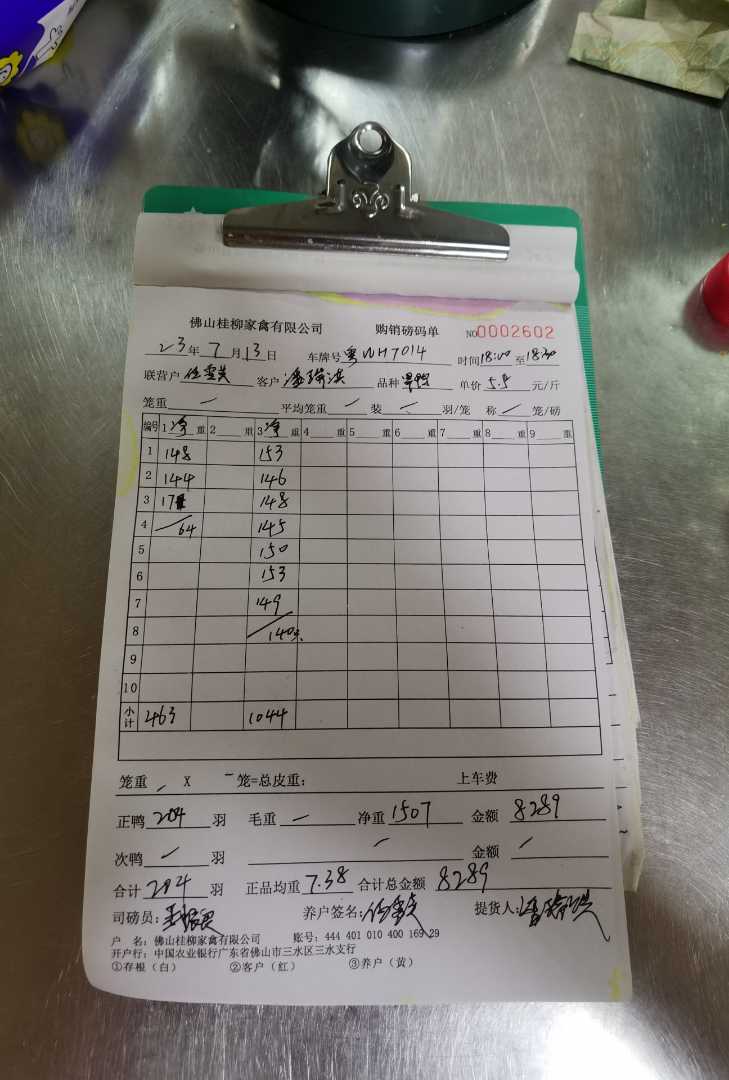 佛山桂柳家禽有限公司 购销磅码单 NO0002602
23年7月13日 车牌号粤WH7014 时间18:00至18:30
联营户 客户 品种 单价5.5元/斤
笼重 — 平均笼重 — 装 — 羽/笼 称 — 笼/磅
编号 1净重 2重 3净重 4重 5重 6重 7重 8重 9重
1 148 153
2 144 146
3 148
4 64 145
5 150
6 153
7 149
8 140
9
10
小计 463 1044
笼重 — X — 笼=总皮重: 上车费
正鸭204羽 毛重 — 净重1507 金额8289
次鸭 — 羽 — 金额 —
合计204羽 正品均重7.38 合计总金额8289
司磅员: 养户签名: 提货人:
户 名: 佛山桂柳家禽有限公司 账号: 444 401 010 400 169 29
开户行: 中国农业银行广东省佛山市三水区三水支行
①存根(白) ②客户(红) ③养户(黄)